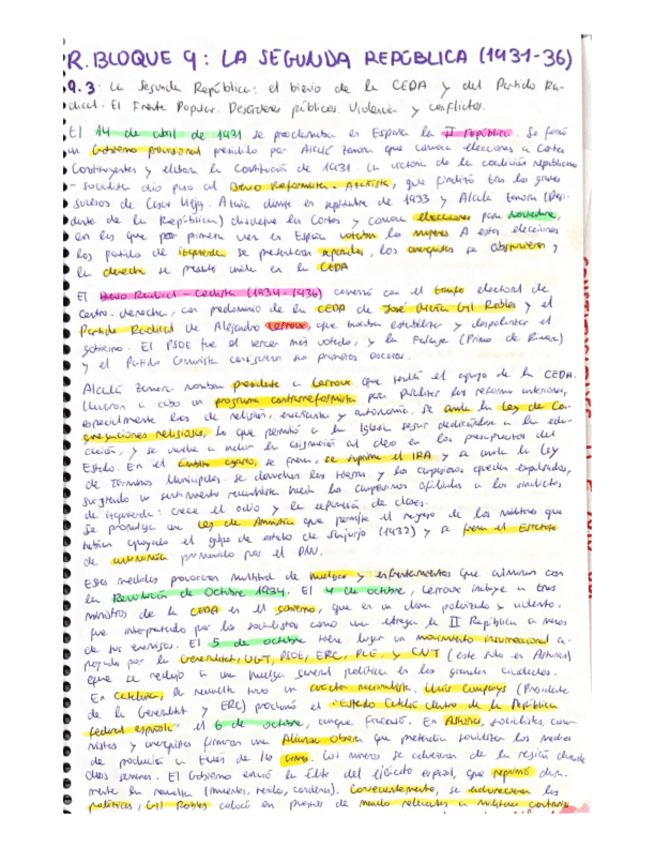 R. BLOQUE 9: LA SEGUNDA REPÚBLICA (1931-36)
9.3: La Segunda República: el bienio de la CEDA y del Partido Ra-
dical. El Frente Popular. Desórdenes públicos. Violencia y conflictos.
El 14 de abril de 1931 se proclamaba en España la II República. Se formó
un Gobierno provisional presidido por Alcalá Zamora que convoca elecciones a Cortes
Constituyentes y elabora la Constitución de 1931. La victoria de la coalición republicano
- socialista dio paso al Bienio Reformista - Azañista, que finalizó tras los graves
sucesos de Casas Viejas. Azaña dimite en septiembre de 1933 y Alcalá Zamora (Presi-
dente de la República) disuelve las Cortes y convoca elecciones para noviembre,
en las que por primera vez en España votaban las mujeres. A estas elecciones
los partidos de izquierda se presentaron separados, los anarquistas se abstuvieron y
la derecha se presentó unida en la CEDA
El Bienio Radical - Cedista (1934-1936) comenzó con el triunfo electoral de
centro-derecha, con predominio de la CEDA de José María Gil Robles y el
Partido Radical de Alejandro Lerroux, que buscaban estabilizar y despolarizar el
gobierno. El PSOE fue el tercer más votado, y la Falange (Primo de Rivera)
y el Partido Comunista consiguieron sus primeros escaños.
Alcalá Zamora nombra presidente a Lerroux que tendrá el apoyo de la CEDA.
Llevaron a cabo un programa contrarreformista para paralizar las reformas anteriores,
especialmente las de religión, enseñanza y autonomía. Se anula la Ley de Con-
gregaciones religiosas, lo que permitió a la Iglesia seguir dedicándose a la edu-
cación, y se vuelve a incluir la asignación al clero en los presupuestos del
Estado. En el ámbito agrario, se frena, se suprime el IRA y se anula la Ley
de Términos Municipales. Se devuelven las tierras y los campesinos quedan expulsados,
surgiendo un sentimiento revanchista hacia los campesinos afiliados a los sindicatos
de izquierda: crece el odio y la separación de clases.
Se promulga una Ley de Amnistía que permite el regreso de los militares que
habían apoyado el golpe de estado de Sanjurjo (1932) y se frena el Estatuto
de autonomía promovido por el PNV.
Estas medidas provocaron multitud de huelgas y enfrentamientos que culminan con
la Revolución de Octubre 1934. El 4 de octubre, Lerroux incluye a tres
ministros de la CEDA en el gobierno, que en un clima polarizado y violento,
fue interpretado por los socialistas como una entrega de la II República a manos
de sus enemigos. El 5 de octubre tiene lugar un movimiento insurreccional a-
poyado por la Generalitat, UGT, PSOE, ERC, PCE y CNT (este solo en Asturias)
que se redujo a una huelga general política en las grandes ciudades.
En Cataluña, la revuelta tuvo un carácter nacionalista. Lluís Companys (Presidente
de la Generalitat y ERC) proclamó el "Estado Catalán dentro de la República
federal española" el 6 de octubre, aunque fracasó. En Asturias, socialistas, comu-
nistas y anarquistas firmaron una Alianza Obrera que pretendía socializar los medios
de producción a través de las armas. Los mineros se adueñaron de la región durante
dos semanas. El Gobierno envió la élite del ejército español, que reprimió dura-
mente la revuelta (muertos, heridos, condenas). Consecuentemente, se endurecieron las
políticas, Gil Robles colocó en puestos de mando relevantes a militares contrarios